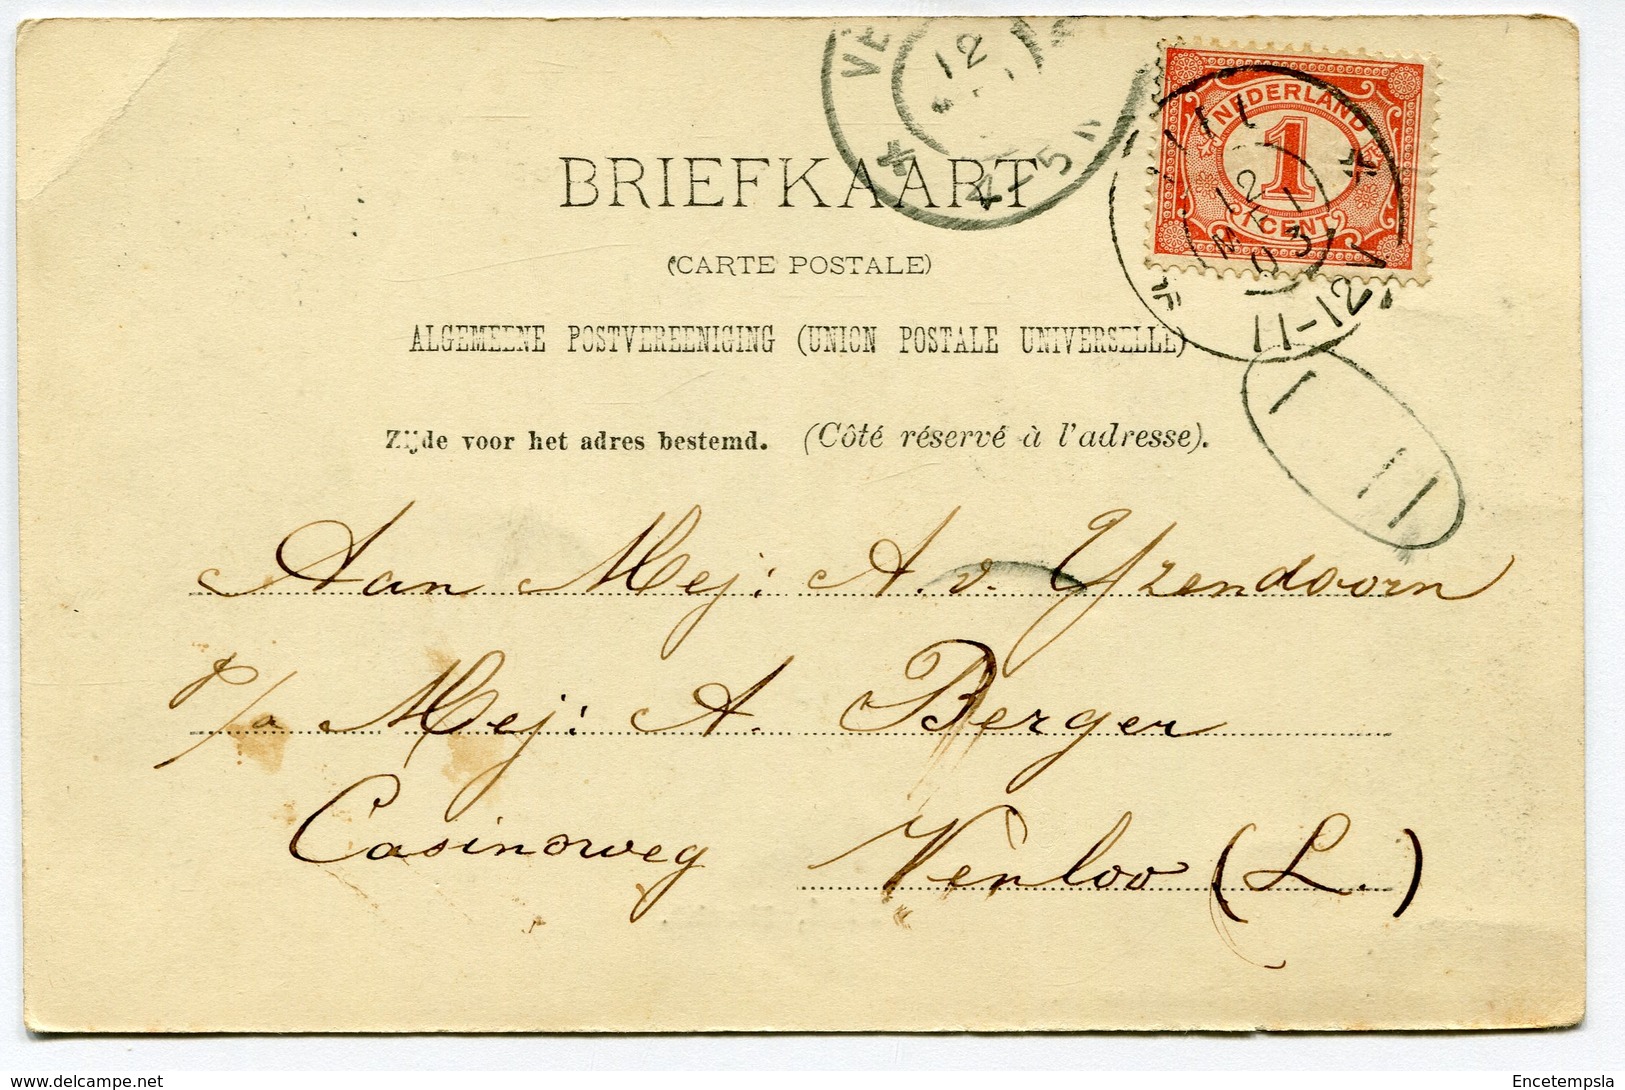 VE
12
4-5 N
NEDERLAND
1
1 CENT
12
MEI
03
11-12 V
BRIEFKAART
(CARTE POSTALE)
ALGEMEENE POSTVEREENIGING (UNION POSTALE UNIVERSELLE)
Zijde voor het adres bestemd. (Côté réservé à l'adresse).
Aan Mej: A. v. Yzendoorn
p/a Mej: A. Berger
Casinoweg Venloo (L.)
delcampe.net
Encetempsla